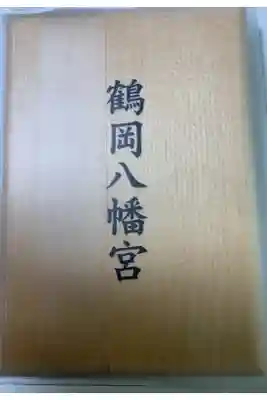 鶴岡八幡宮